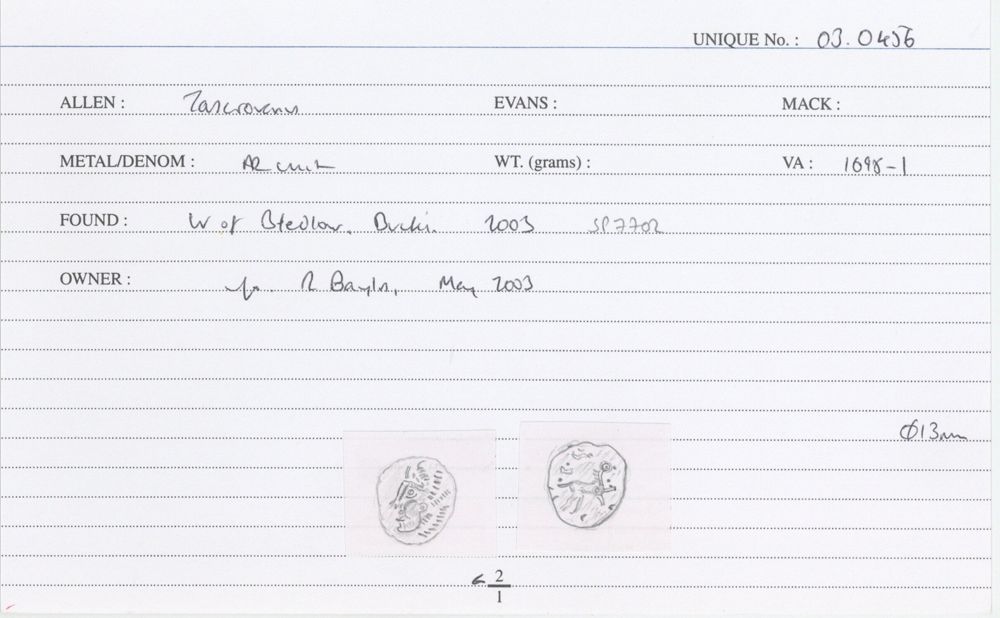 UNIQUE No. : 03.0456
ALLEN : Tasciovanus EVANS : MACK :
METAL/DENOM : AR unit WT. (grams) : VA : 1698-1
FOUND : W of Bledlow, Bucks. 2003 SP7702
OWNER : R Bayly, May 2003
Ø13mm
c 2/1